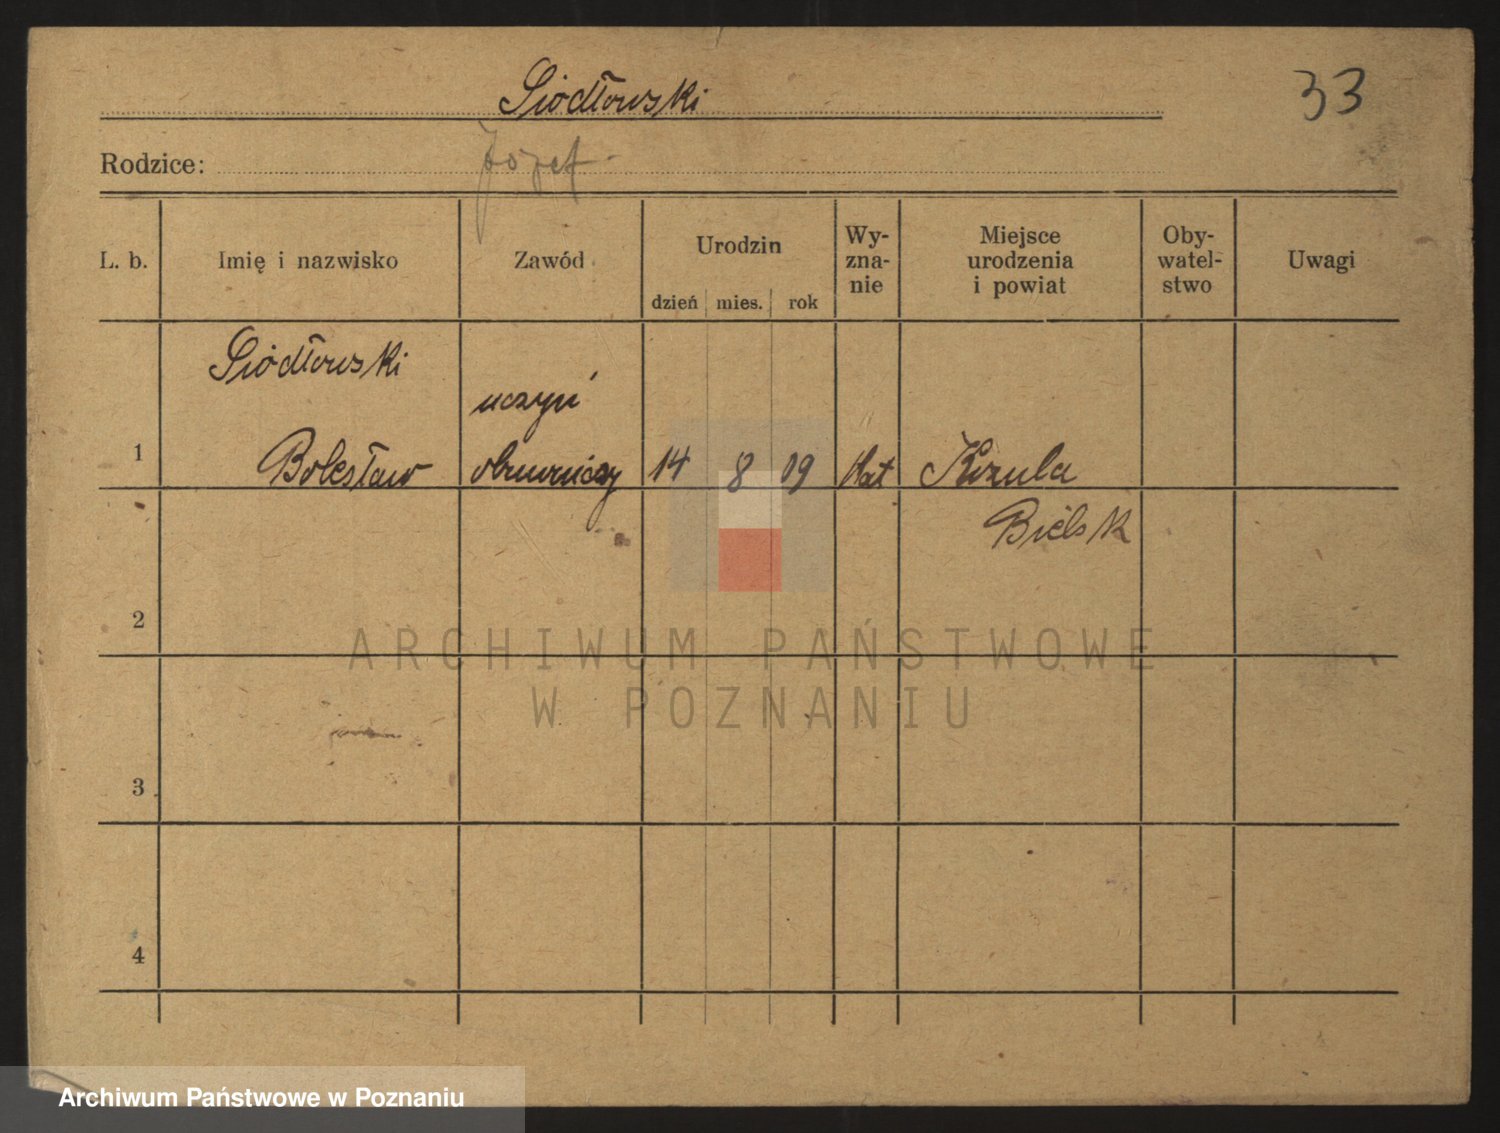 Siodłowski
33
Rodzice:
Józef
L. b.
Imię i nazwisko
Zawód
Urodzin
dzień mies. rok
Wy-
zna-
nie
Miejsce
urodzenia
i powiat
Oby-
watel-
stwo
Uwagi
Siodłowski
uczyń
1 Bolesław 14 8 09 Kat
Bielsk
2
3
4
ARCHIWUM PAŃSTWOWE
W POZNANIU
Archiwum Państwowe w Poznaniu